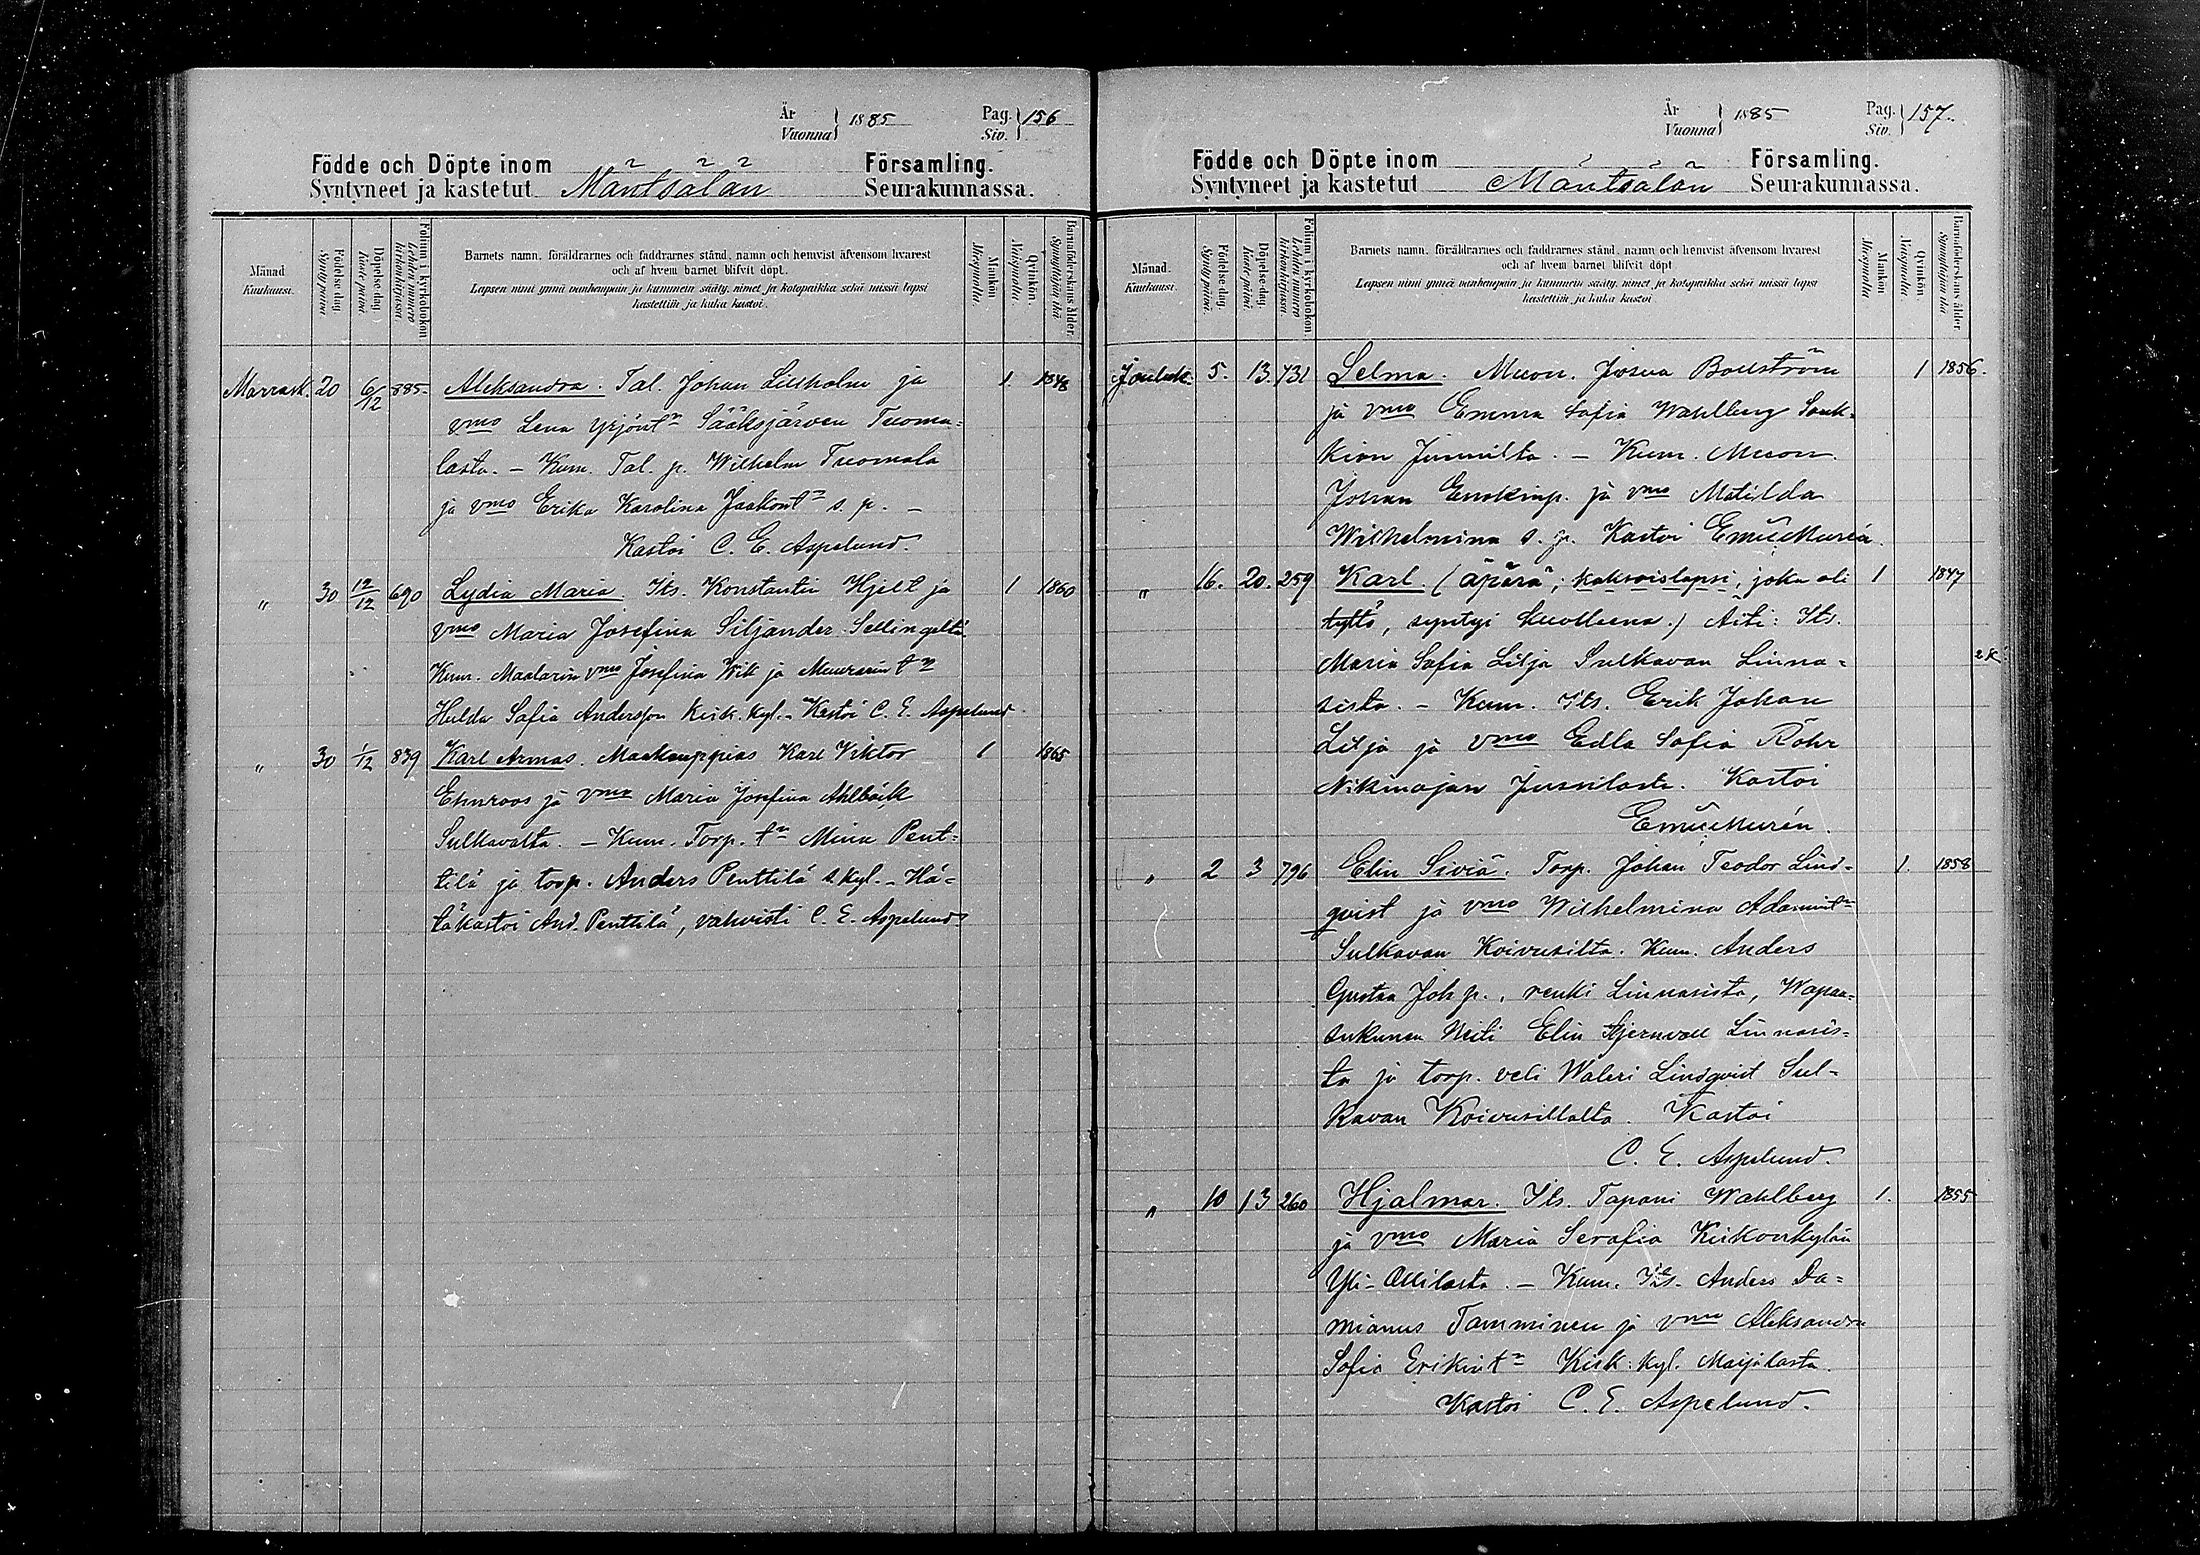 År Vuonna } 1885 Pag. Siv. } 156
Födde och Döpte inom Församling.
Syntyneet ja kastetut Mäntsälän Seurakunnassa.
Månad Kuukausi.
Födelse dag Syntypäivä.
Döpelse dag Kastepäivä.
Folium i kyrkoboken Lehden numero kirkonkirjassa.
Barnets namn, föräldrarnes och faddrarnes stånd, namn och hemvist äfvensom hvarest
och af hvem barnet blifvit döpt.
Lapsen nimi ynnä vanhempain ja kummein sääty, nimet ja kotopaikka sekä missä lapsi
kastettiin ja kuka kastoi.
Mankön Miespuolta.
Qvinkön. Naispuolta.
Barnaföderskans ålder. Synnyttäjän ikä
Marrask. 20 6/12 885. Aleksandra. Tal. Johan Lillholm ja 1. 1848
vmo Lena Yrjönt Sääksjärven Tuoma-
lasta. - Kum. Tal. p. Wilhelm Tuomala
ja vmo Erika Karolina Jaakont s. p. -
Kastoi C. E. Aspelund.
„ 30 12/12 690 Lydia Maria. Its. Konstantin Hjelt ja 1 1860
vmo Maria Josefina Siljander Sellingeltä.
Kum. Maalarin vmo Josefina Wik ja Muurarin tr
Hulda Sofia Andersson Kirk. kyl. - Kastoi C. E. Aspelund
„ 30 1/12 839 Karl Armas. Maakauppias Karl Viktor 1 1865
Ehnroos ja vmo Maria Josefina Ahlbäck
Sulkavalta. - Kum. Torp. tr Mina Pent-
tilä ja torp. Anders Penttilä s. kyl. - Hä-
täkastoi And. Penttilä, vahvisti C. E. Aspelund
År Vuonna } 1885 Pag. Siv. } 157.
Födde och Döpte inom Församling.
Syntyneet ja kastetut Mäntsälän Seurakunnassa.
Månad. Kuukausi.
Födelse dag. Syntypäivä.
Döpelse dag. Kastepäivä.
Folium i kyrkoboken Lehden numero kirkonkirjassa.
Barnets namn, föräldrarnes och faddrarnes stånd, namn och hemvist äfvensom hvarest
och af hvem barnet blifvit döpt
Lapsen nimi ynnä vanhempain ja kummein sääty, nimet ja kotopaikka sekä missä lapsi
kastettiin ja kuka kastoi.
Mankön Miespuolta.
Qvinkön. Naispuolta.
Barnaföderskans ålder. Synnyttäjän ikä
Jouluk. 5. 13. 731 Selma. Muon. Josua Bouström 1 1856.
ja vmo Emma Sofia Wahlberg Sauk-
kion Junnilta. - Kum. Muon.
Johan Enokinp. ja vmo Matilda
Wilhelmina s. p. Kastoi Emil Murén.
„ 16. 20. 259 Karl. (äpärä; kaksoislapsi, joka oli 1 1847
tyttö, syntyi kuolleena.) Äiti: Its.
Maria Sofia Lilja Sulkavan Linna- 2 K.
sista. - Kum. Its. Erik Johan
Lilja ja vmo Edla Sofia Röhr
Nikinojan Jussilasta. Kastoi
Emil Murén.
„ 2 3 796 Elin Siviä. Torp. Johan Teodor Lind- 1. 1858
qvist ja vmo Wilhelmina Adamint
Sulkavan Koivusilta. Kum. Anders
Gustaa Joh p., renki Linnasista, Wapaa-
sukunen Neiti Elin Stjernvall Linnasis-
ta ja torp. veli Waleri Lindqvist Sul-
kavan Koivusillalta. Kastoi
C. E. Aspelund.
„ 10 13 260 Hjalmar. Its. Tapani Wahlberg 1. 1855
ja vmo Maria Serafia Kirkonkylän
Yli-Ollilasta. - Kum. Its. Anders Da-
mianus Tamminen ja vmo Aleksandra
Sofia Erikint Kirk. kyl. Maijalasta.
Kastoi C. E. Aspelund.